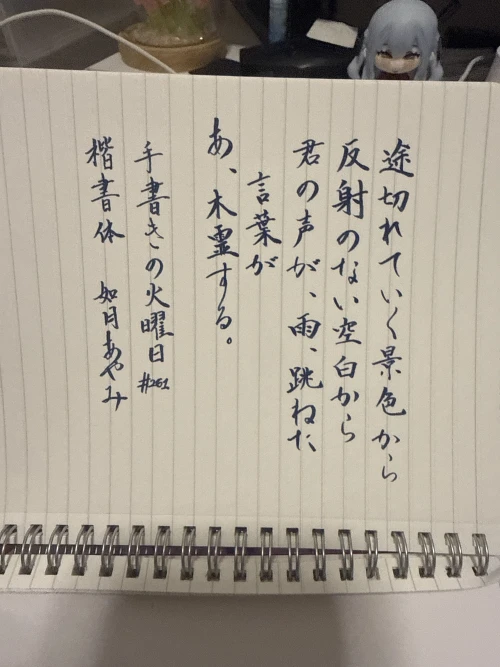 途切れていく景色から
反射のない空白から
君の声が、雨、跳ねた
言葉が
あ、木霊する。
手書きの火曜日 #261
楷書体 如月あやみ